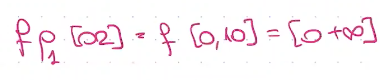 f p₁ [02] = f [0,10] = [0 +∞]